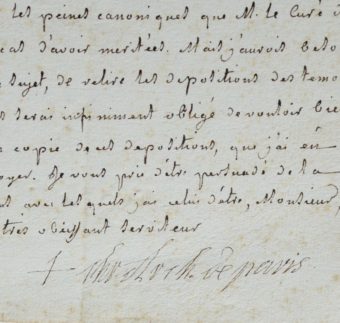 les peines canoniques que M. le Curé
cas d'avoir meritées. Mais j'aurois beso
sujet, de relire les depositions des temo
serai infiniment obligé de vouloir bie
copie de ces depositions, que j'ai en
oyer. Je vous prie d'être persuadé de la
avec lesquels j'ai celui d'être, Monsieur,
tres obeissant serviteur
+ chr. arch. de paris.